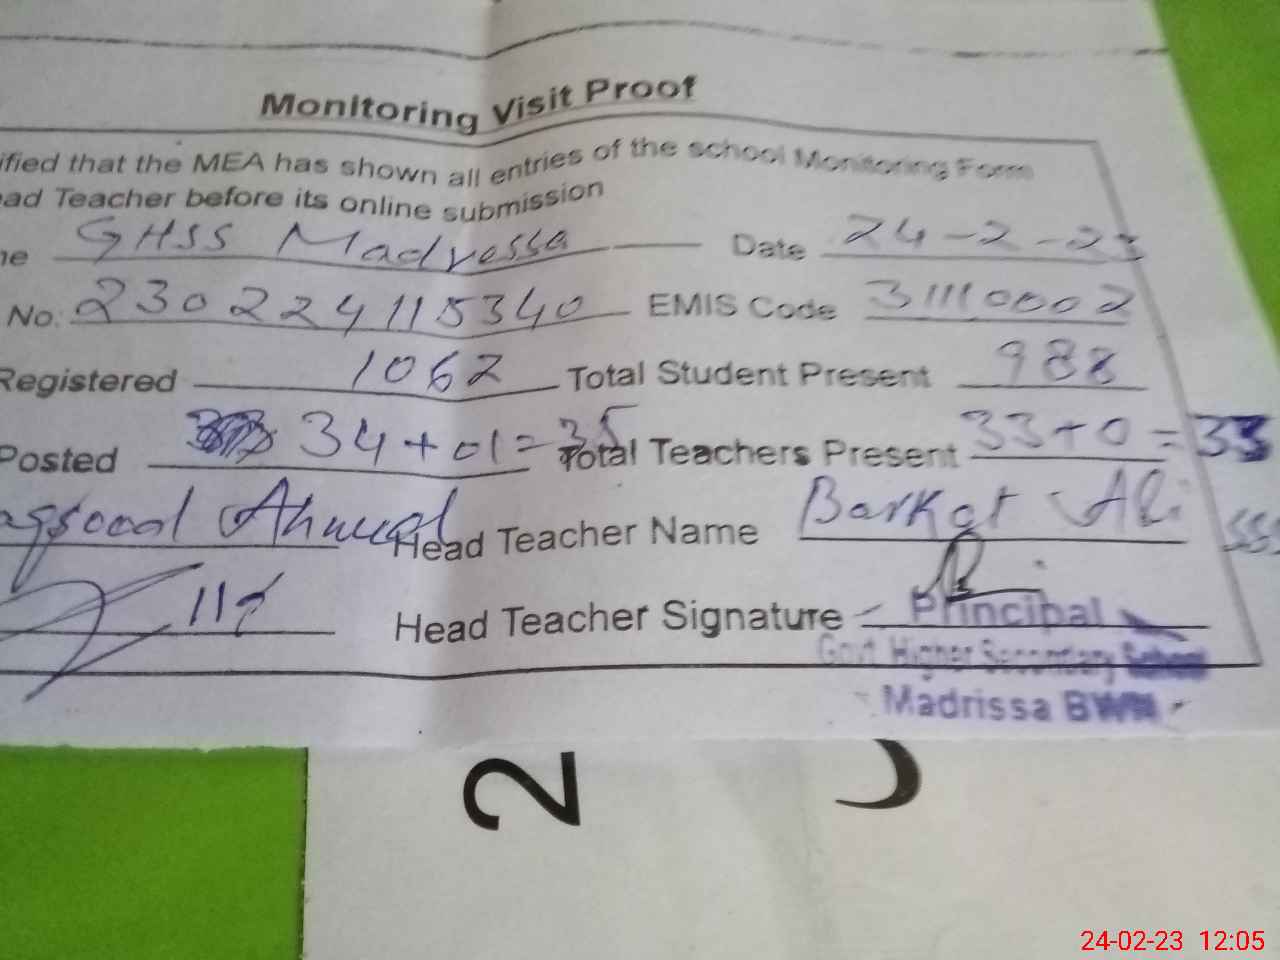 Monitoring Visit Proof
ified that the MEA has shown all entries of the school Monitoring Form
ead Teacher before its online submission
ne GHSS Madressa Date 24-2-23
No: 230224115340 EMIS Code 31110002
Registered 1062 Total Student Present 988
Posted 34+01=35 Total Teachers Present 33+0=33
aqsood Ahmad Head Teacher Name Barkat Ali
Head Teacher Signature
Principal
Govt Higher Secondary School
Madrissa BWN
2
24-02-23 12:05